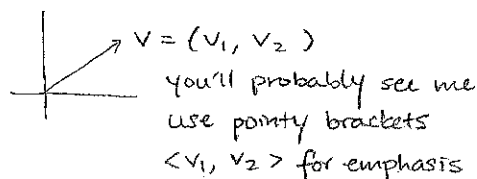 V = (V₁, V₂)
you'll probably see me
use pointy brackets
<V₁, V₂> for emphasis